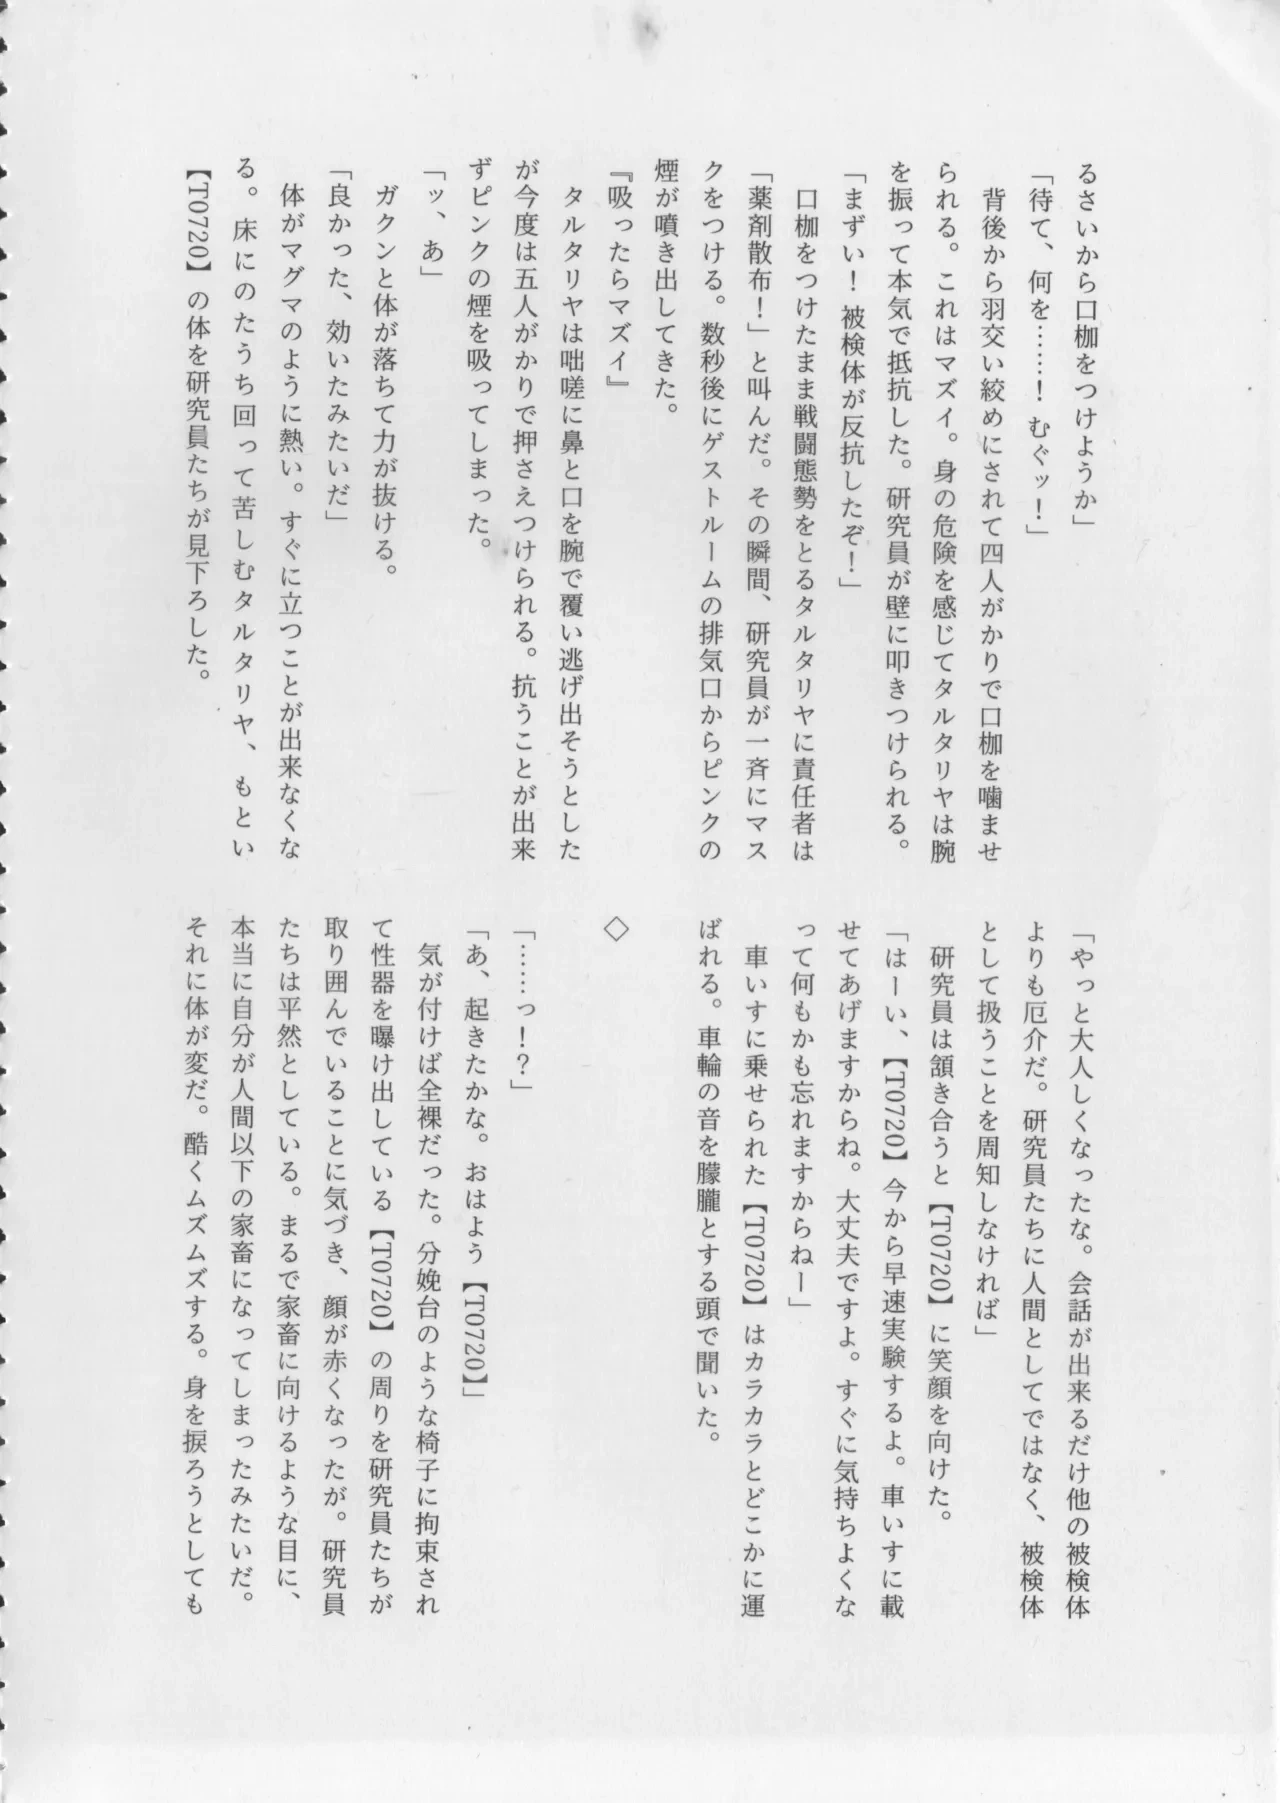 るさいから口枷をつけようか」
「待て、何を……！ むぐッ！」
　背後から羽交い絞めにされて四人がかりで口枷を噛ませ
られる。これはマズイ。身の危険を感じてタルタリヤは腕
を振って本気で抵抗した。研究員が壁に叩きつけられる。
「まずい！ 被検体が反抗したぞ！」
　口枷をつけたまま戦闘態勢をとるタルタリヤに責任者は
「薬剤散布！」と叫んだ。その瞬間、研究員が一斉にマス
クをつける。数秒後にゲストルームの排気口からピンクの
煙が噴き出してきた。
『吸ったらマズイ』
　タルタリヤは咄嗟に鼻と口を腕で覆い逃げ出そうとした
が今度は五人がかりで押さえつけられる。抗うことが出来
ずピンクの煙を吸ってしまった。
「ッ、あ」
　ガクンと体が落ちて力が抜ける。
「良かった、効いたみたいだ」
　体がマグマのように熱い。すぐに立つことが出来なくな
る。床にのたうち回って苦しむタルタリヤ、もとい
【T0720】の体を研究員たちが見下ろした。
「やっと大人しくなったな。会話が出来るだけ他の被検体
よりも厄介だ。研究員たちに人間としてではなく、被検体
として扱うことを周知しなければ」
　研究員は頷き合うと【T0720】に笑顔を向けた。
「はーい、【T0720】今から早速実験するよ。車いすに載
せてあげますからね。大丈夫ですよ。すぐに気持ちよくな
って何もかも忘れますからねー」
　車いすに乗せられた【T0720】はカラカラとどこかに運
ばれる。車輪の音を朦朧とする頭で聞いた。
◇
「……っ！？」
「あ、起きたかな。おはよう【T0720】」
　気が付けば全裸だった。分娩台のような椅子に拘束され
て性器を曝け出している【T0720】の周りを研究員たちが
取り囲んでいることに気づき、顔が赤くなったが。研究員
たちは平然としている。まるで家畜に向けるような目に、
本当に自分が人間以下の家畜になってしまったみたいだ。
それに体が変だ。酷くムズムズする。身を捩ろうとしても